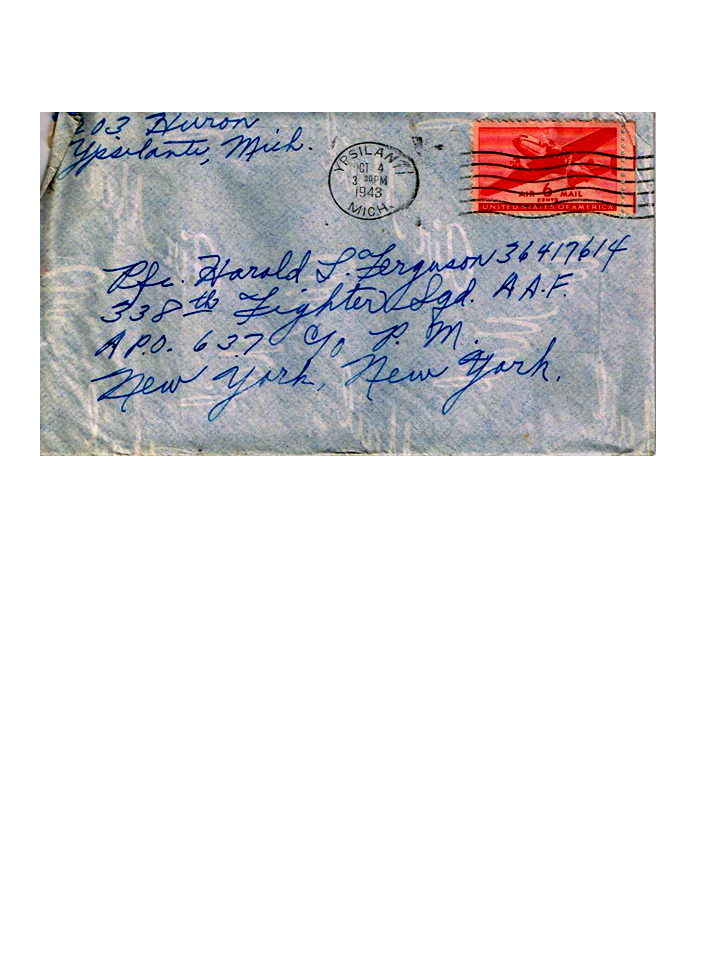 203 Huron
Ypsilanti, Mich.
YPSILANTI
OCT 4
3 30 PM
1943
MICH.
AIR 6 MAIL
CENTS
UNITED STATES OF AMERICA
Pfc. Harold L. Ferguson 36417614
338th Fighter Sqd. A.A.F.
A.P.O. 637 c/o P. M.
New York, New York.